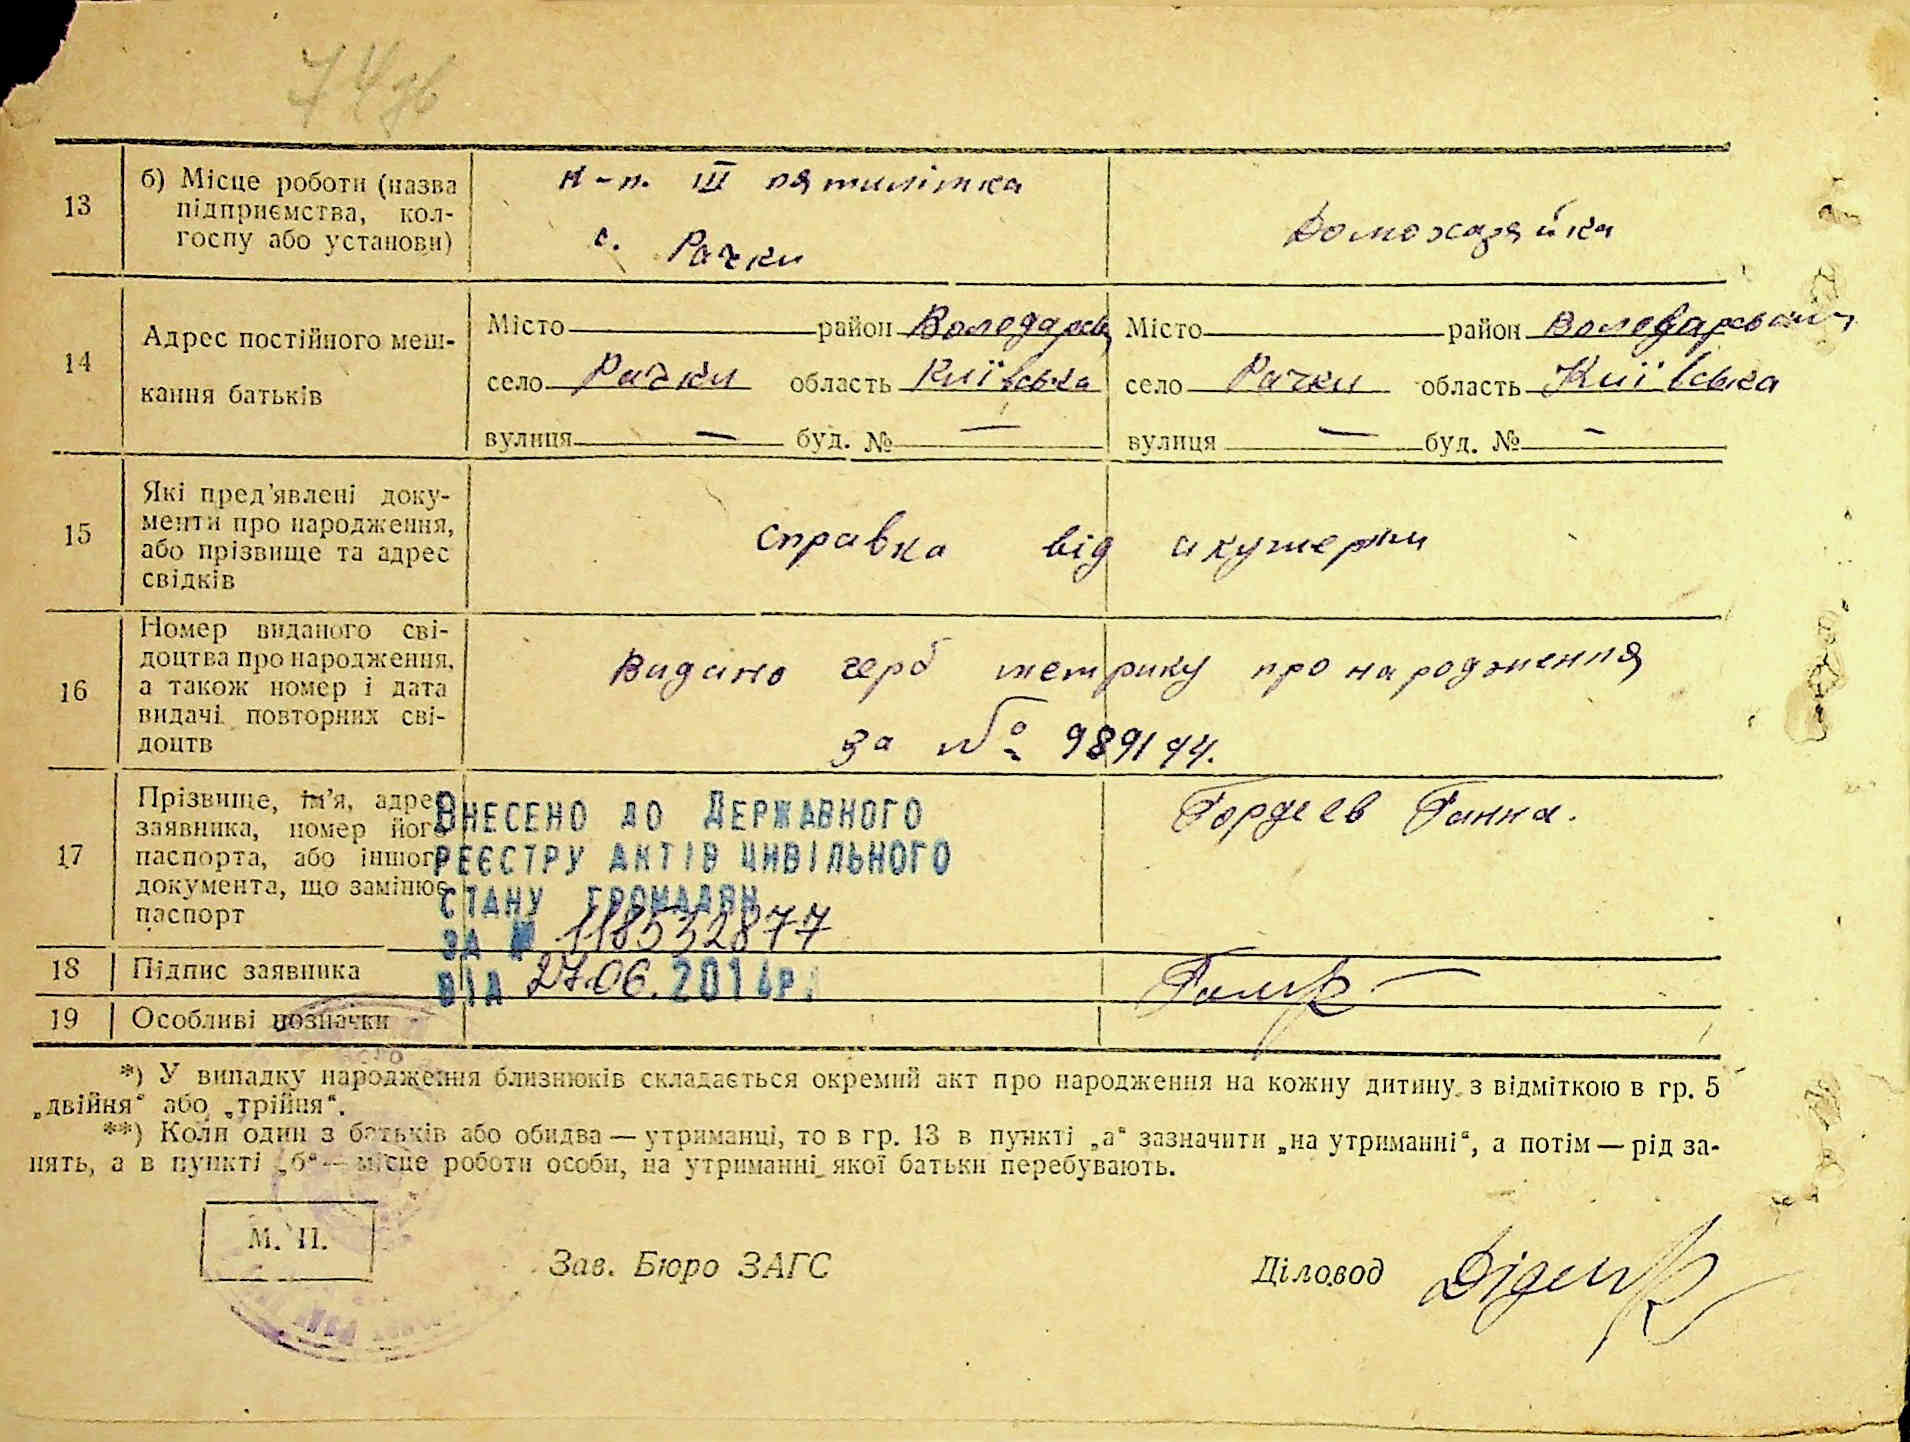 74 зв
13
б) Місце роботи (назва
підприємства, кол-
госпу або установи)
к-п. III пятилітка
с. Рачки
Домохазяйка
14
Адрес постійного меш-
кання батьків
Місто район Володарсь
село Рачки область Київська
вулиця — буд. № —
Місто район Володарський
село Рачки область Київська
вулиця — буд. № —
15
Які пред'явлені доку-
менти про народження,
або прізвище та адрес
свідків
справка від акушерки
16
Номер виданого сві-
доцтва про народження,
а також номер і дата
видачі повторних сві-
доцтв
Видано герб метрику про народження
за № 989194.
17
Прізвище, ім'я, адрес
заявника, номер його
паспорта, або іншого
документа, що замінює
паспорт
Внесено до Державного
реєстру актів цивільного
стану громадян
за № 118532877
від 27.06.2014р.
Гордієв Ганна.
18
Підпис заявника
19
Особливі позначки
*) У випадку народження близнюків складається окремий акт про народження на кожну дитину з відміткою в гр. 5
„двійня“ або „трійня“.
**) Коли один з батьків або обидва — утриманці, то в гр. 13 в пункті „а“ зазначити „на утриманні“, а потім — рід за-
нять, а в пункті „б“ — місце роботи особи, на утриманні якої батьки перебувають.
М. П.
Зав. Бюро ЗАГС
Діловод